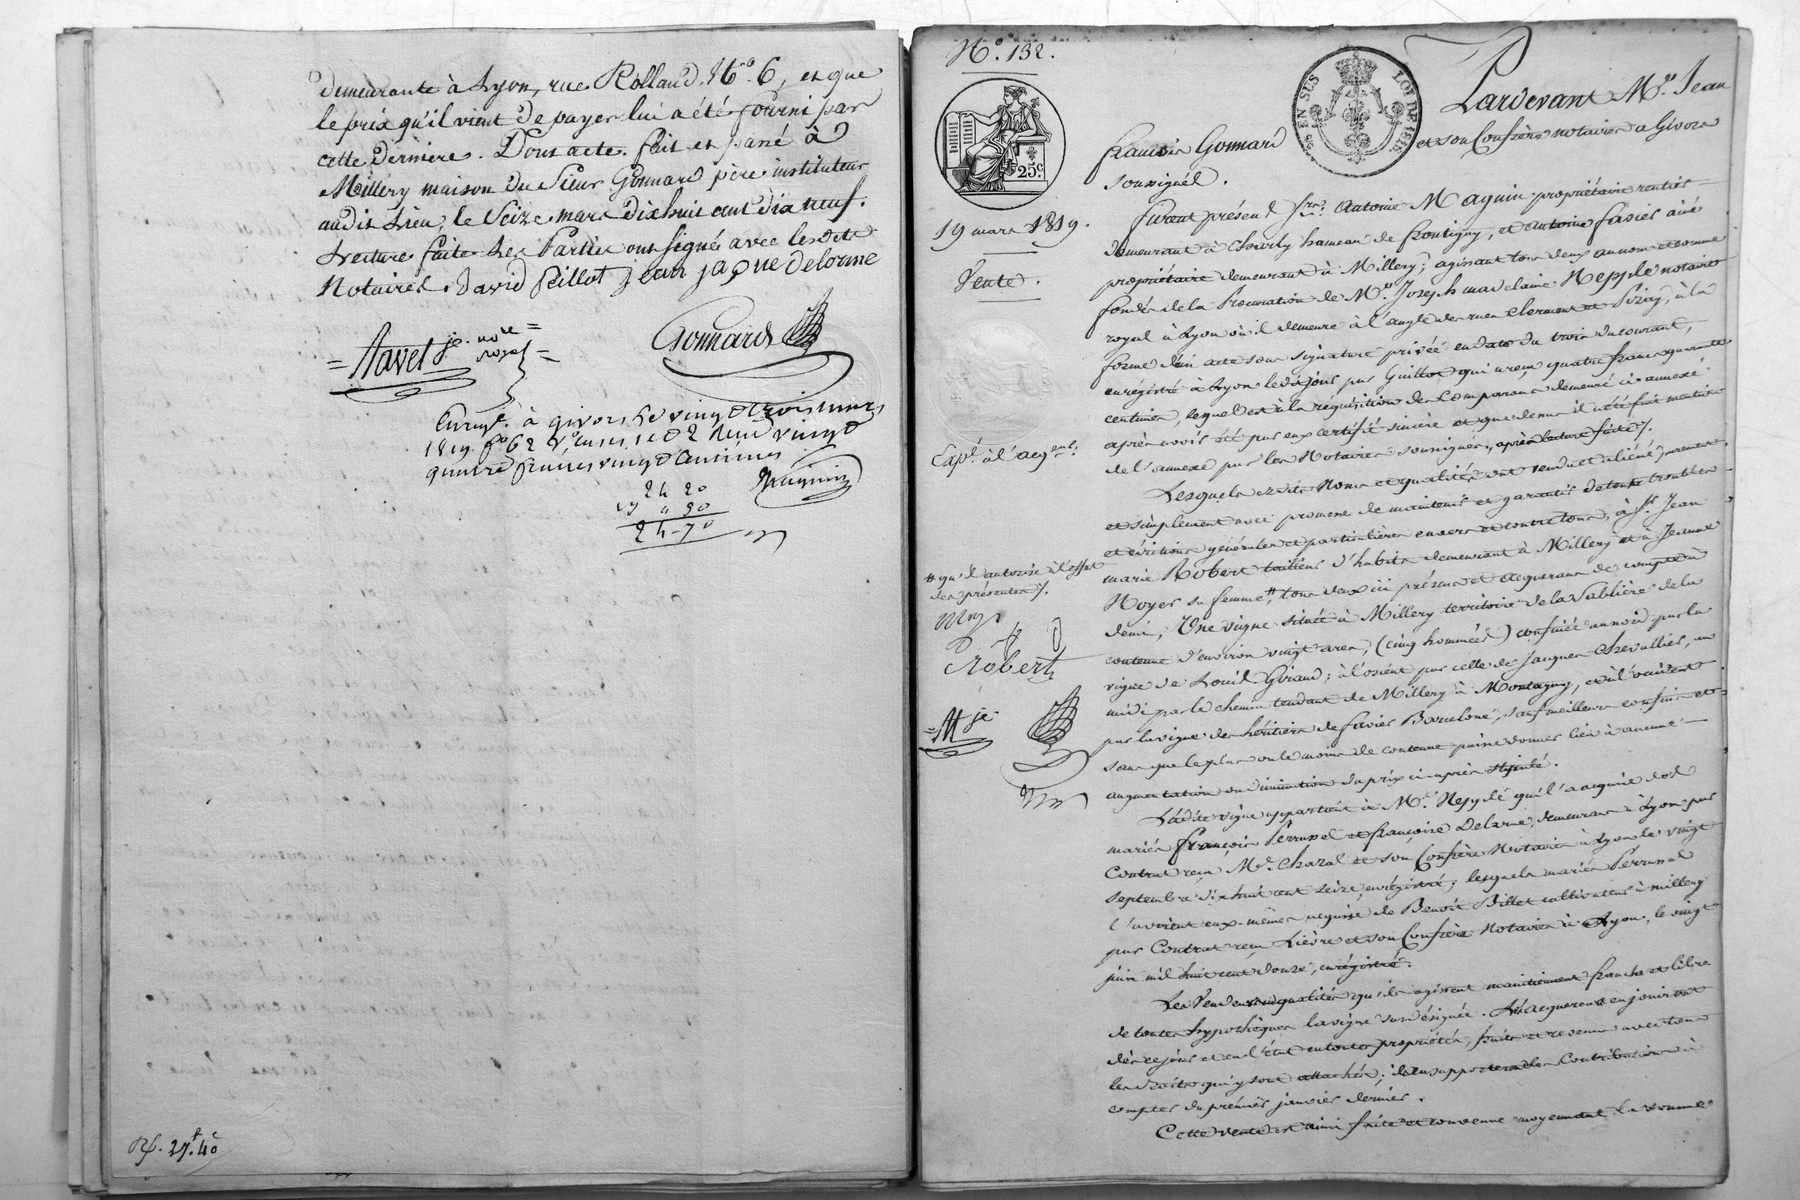 demeurante à Lyon, rue Rolland, N.º 6, et que
le prix qu'il vient de payer lui a été fourni par
cette dernière. Dont acte. fait et passé à
Millery maison du Sieur Gonnard père instituteur
audit Lieu, le Seize mars dixhuit cent dix neuf.
Lecture faite les Parties ont signé avec lesdits
Notaires. david Peillot jean jaque delorme
Navel je. nore royal
Gonnard
Enreg. à givors le vingt trois mars
1819. fo 62 Vo cases 1e et 2 Reçu vingt
quatre francs vingt Centimes
24 20
24-70
Rf. 27f. 40c
Nº. 132.
EN SUS
LOI DE 1816
25c
19 mars 1819.
Vente.
Expé. à l'acqent.
# qu'il autorise à l'effet
des présentes /.
Probert
Pardevant Me. Jean
francois Gonnard et son Confrère notaires à Givors
soussignés.
furent présens Srs. Antoine Maguin propriétaire rentier
demeurant à Charly hameau de frontigny, et antoine favier ainé
propriétaire demeurant à Millery; agissant tous deux au nom et comme
fondés de la Procuration de Me. Joseph madelaine Nepple notaire
royal à Lyon où il demeure à l'angle des rues clermont et Pizay, à la
forme d'un acte sous signature privée en date du trois du courant,
enrégistré à Lyon le dix jour par Guillot qui a reçu quatre francs quarante
centimes, lequel est à la réquisition des Comparans demeuré ci-annexé
après avoir été par eux certifié sincère et que dessus il a été fait mention
de l'annexe par les Notaires soussignés, après lecture faite /.
Lesquels esdits Noms et qualités ont vendu et aliéné purement
et simplement avec promesse de maintenir et garantir de tous troubles
et évictions générales et particulières envers et contre tous, à Sr. Jean
marie Robert tailleur d'habits demeurant à Millery et à Jeanne
Noyer sa femme #, tous deux ici présens et acquerans de compte à
demi, Une vigne située à Millery territoire de la Sablière de la
contenue d'environ vingt ares, (cinq hommées) confinée au nord par la
vigne de Louis Giraud; à l'orient par celle de Jacques Chevallier, au
midi par le chemin tendant de Millery à Montagny, et à l'occident
par la vigne des héritiers de favier Barcelone, sauf meilleurs confins et
sans que le plus ou le moins de contenue puisse donner lieu à aucune
augmentation ou diminution du prix ci-après stipulé.
Ladite vigne appartient à Me. Nepple qui l'a acquise des
mariés françois Perrussel et françoise Delarue, demeurans à Lyon par
Contrat reçu Me. Chazal et son Confrère Notaires à Lyon le vingt
septembre dixhuit cent seize, enrégistré; lesquels mariés Perrussel
l'avoient eux-mêmes acquise de Benoit Billet cultivateur à millery
par Contrat reçu Lièvre et son Confrère Notaires à Lyon, le vingt
juin mil huit cent douze, enrégistré.
Les Vendeurs en qualités qu'ils agissent maintiennent franche et libre
de toutes hypothèques la vigne susdésignée. Les acquereurs en jouiront
dès ce jour et en l'état en toute propriété, fruits et revenus avec tous
les droits qui y sont attachés; ils en supporteront les Contributions à
compter du premier janvier dernier.
Cette vente est ainsi faite et convenue moyennant la somme